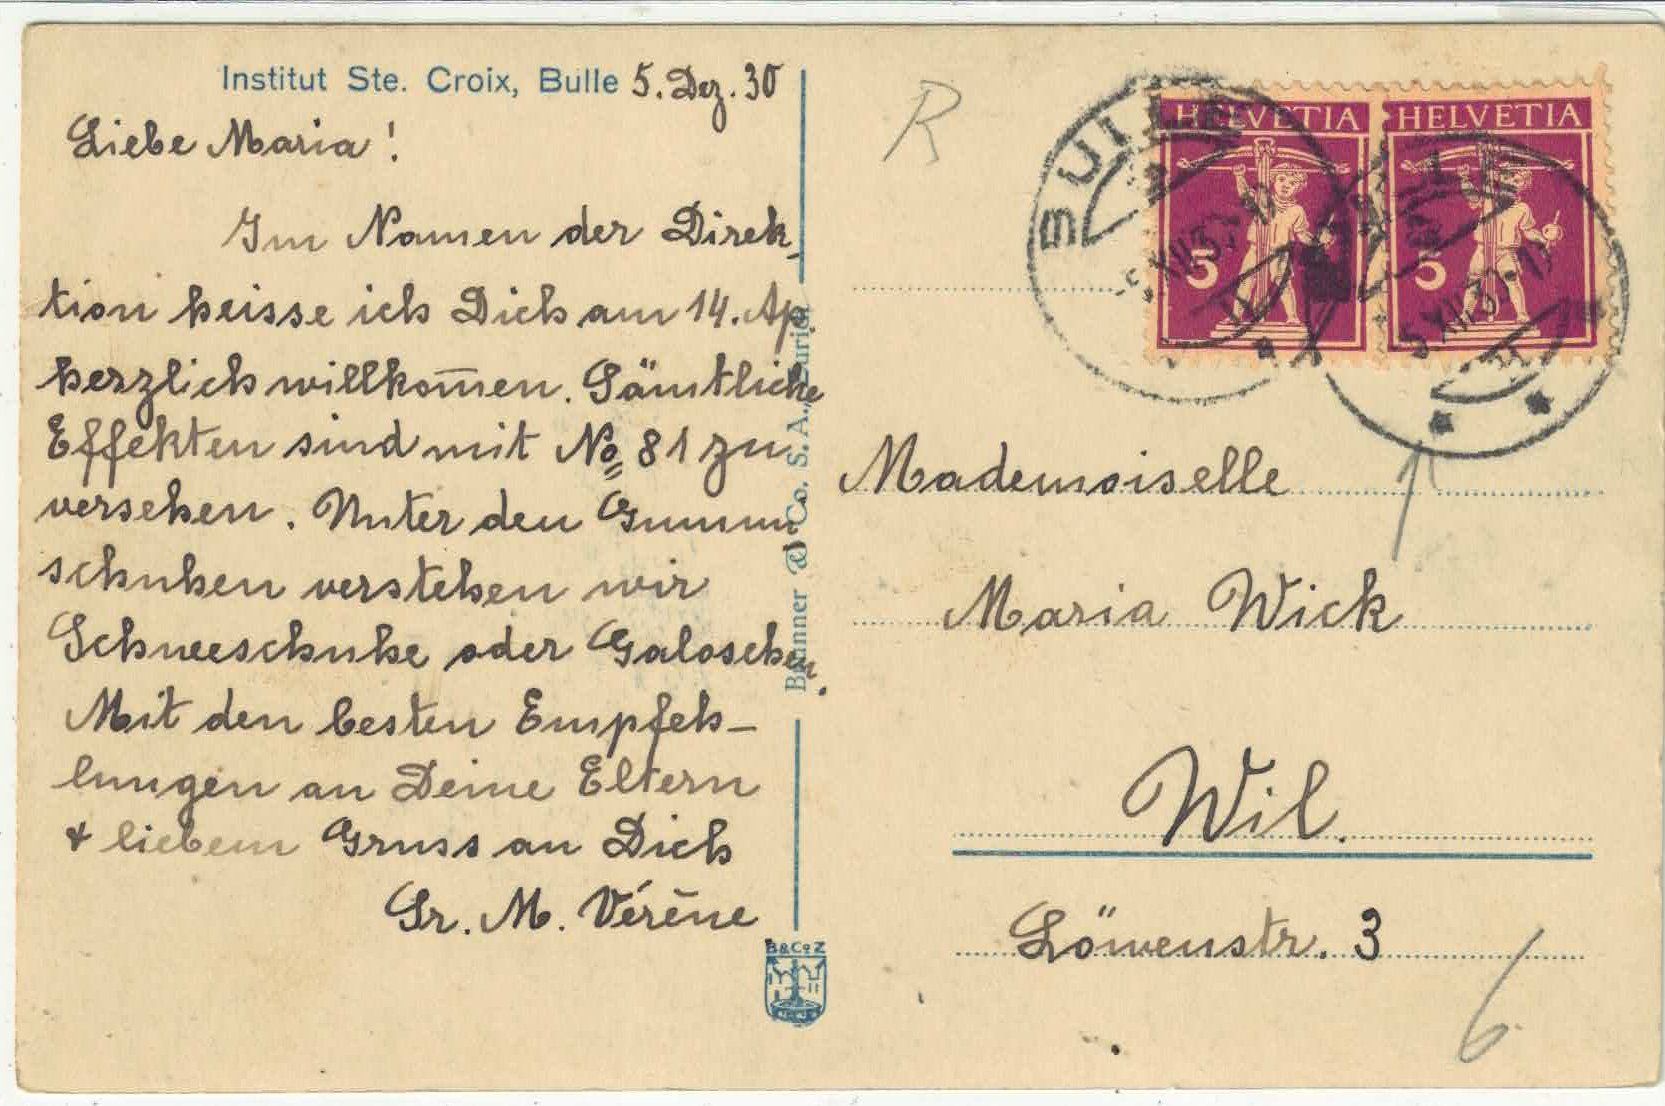 Institut Ste. Croix, Bulle 5. Dez. 30
Liebe Maria!
Im Namen der Direk-
tion heisse ich Dich am 14. Ap.
herzlich willkom̄en. Sämtliche
Effekten sind mit No 81 zu
versehen. Unter den Gummi
schuhen verstehen wir
Schneeschuhe oder Galoschen.
Mit den besten Empfeh-
lungen an Deine Eltern
& liebem Gruss an Dich
Sr. M. Vérène
Co. S. A.
B & Co Z
R
HELVETIA
5
HELVETIA
5
BULLE
5 XII 30
5 XII 30
Mademoiselle
Maria Wick
Wil.
Löwenstr. 3
6